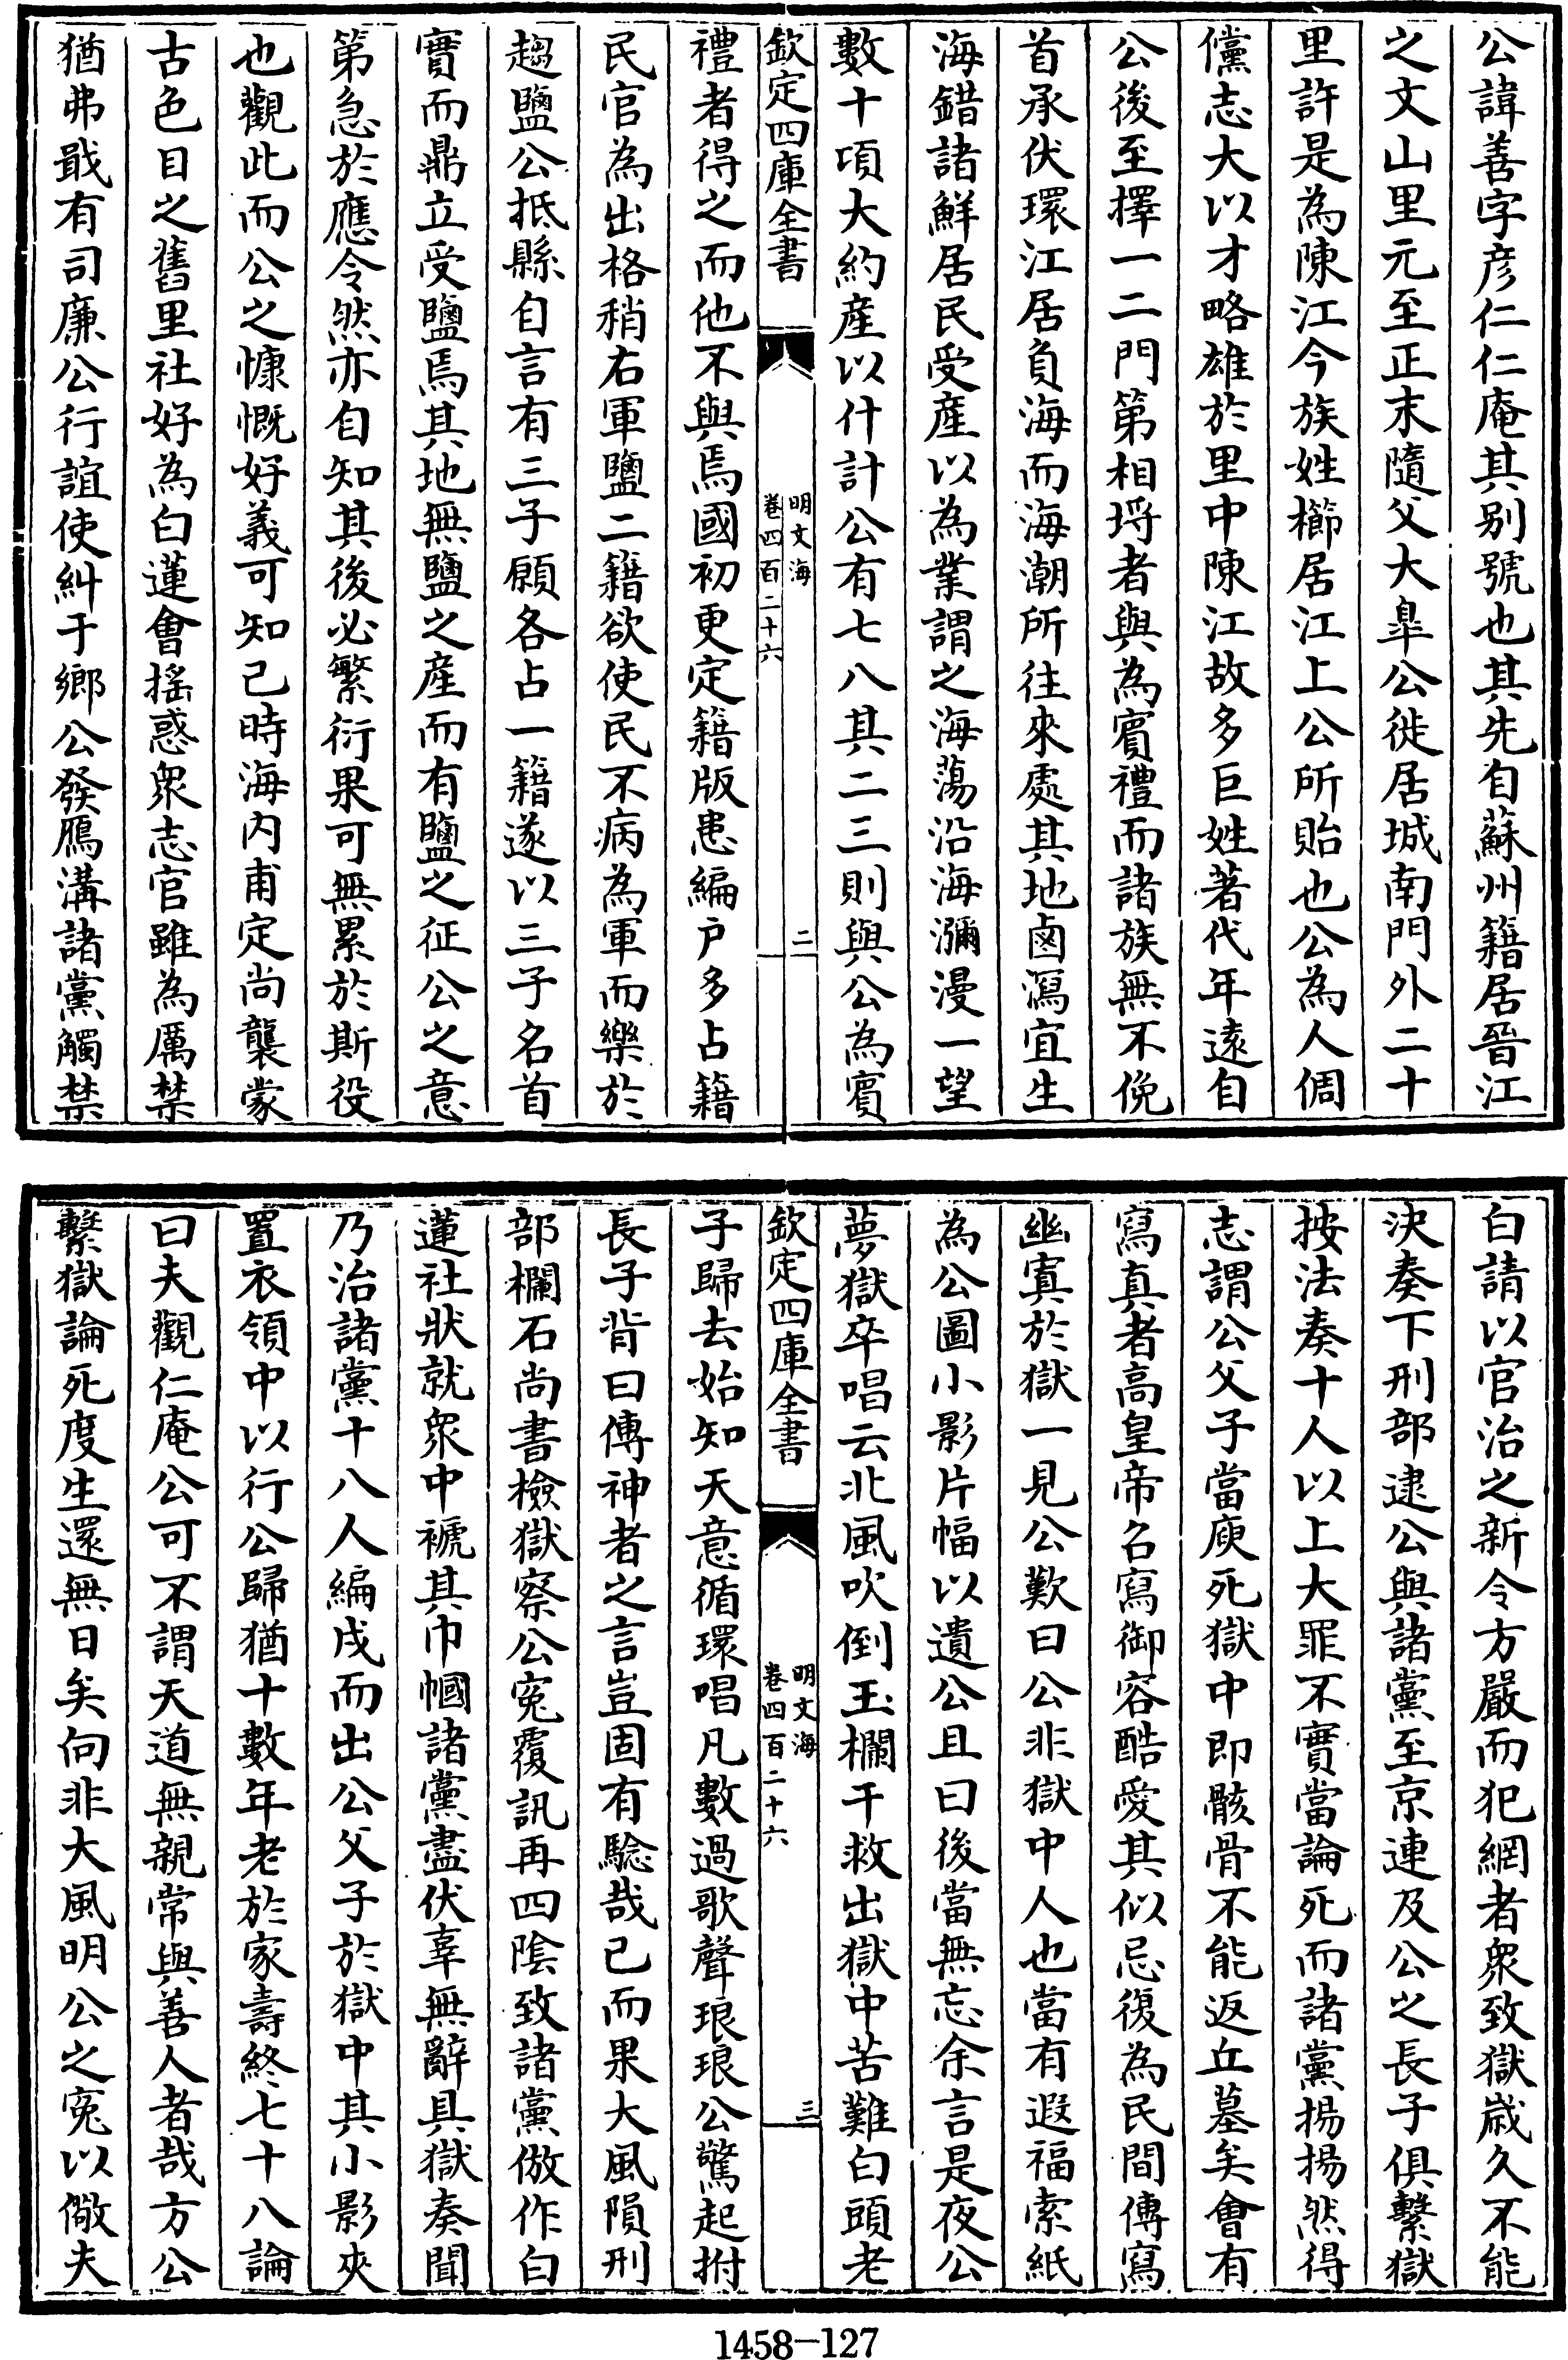 公諱善字彦仁仁庵其别號也其先自蘇州籍居晉江
之文山里元至正末隨父大臯公徙居城南門外二十
里許是為陳江今族姓櫛居江上公所貽也公為人倜
儻志大以才略雄於里中陳江故多巨姓著代年遠自
公後至擇一二門第相埒者與為賓禮而諸族無不俛
首承伏環江居負海而海潮所往來處其地鹵瀉宜生
海錯諸鮮居民受産以為業謂之海蕩沿海瀰漫一望
數十項大約産以什計公有七八其二三則與公為賓
欽定四庫全書
明文海
卷四百二十六
二
禮者得之而他不與焉國初更定籍版患編户多占籍
民官為出格稍右軍鹽二籍欲使民不病為軍而樂於
趨鹽公抵縣自言有三子願各占一籍遂以三子名首
實而鼎立受鹽焉其地無鹽之産而有鹽之征公之意
第急於應令然亦自知其後必繁衍果可無累於斯役
也觀此而公之慷慨好義可知已時海内甫定尚襲蒙
古色目之舊里社好為白蓮會摇惑衆志官雖為厲禁
猶弗戢有司廉公行誼使糾于鄉公發鴈溝諸黨觸禁
白請以官治之新令方嚴而犯網者衆致獄嵗久不能
決奏下刑部逮公與諸黨至京連及公之長子俱繫獄
按法奏十人以上大罪不實當論死而諸黨揚揚然得
志謂公父子當庾死獄中即骸骨不能返丘墓矣會有
寫真者高皇帝名寫御容酷愛其似忌復為民間傳寫
幽寘於獄一見公歎曰公非獄中人也當有遐福索紙
為公圖小影片幅以遺公且曰後當無忘余言是夜公
夢獄卒唱云北風吹倒玉欄干救出獄中苦難白頭老
欽定四庫全書
明文海
卷四百二十六
三
子歸去始知天意循環唱凡數過歌聲琅琅公驚起拊
長子背曰傳神者之言豈固有驗哉已而果大風隕刑
部欄石尚書檢獄察公寃覆訊再四隂致諸黨倣作白
蓮社狀就衆中褫其巾幗諸黨盡伏辜無辭具獄奏聞
乃治諸黨十八人編戍而出公父子於獄中其小影夾
置衣領中以行公歸猶十數年老於家壽終七十八論
曰夫觀仁庵公可不謂天道無親常與善人者哉方公
繫獄論死度生還無日矣向非大風明公之寃以儆夫
1458-127